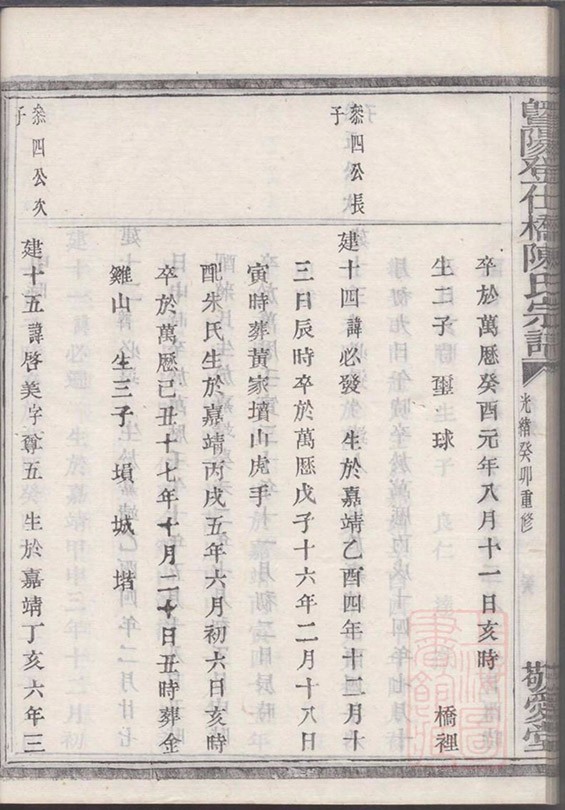 暨陽登仕橋陳氏宗譜
光緒癸卯重修
敬愛堂
卒於萬厯癸酉元年八月十一日亥時
生二子 璽 球 橋裡
叅四公長子
建十四諱必發 生於嘉靖乙酉四年十二月十
三日辰時卒於萬厯戊子十六年二月十八日
寅時葬黄家墳山虎手
配朱氏生於嘉靖丙戌五年六月初六日亥時
卒於萬厯己丑十七年十月二十日丑時葬金
雞山 生三子 塤 城 堦
叅四公次子
建十五諱啓美字尊五 生於嘉靖丁亥六年三